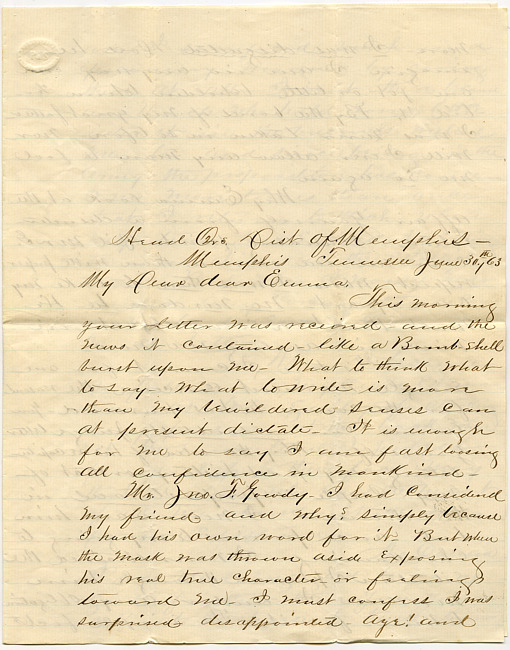 Head Qrs. Dist. of Memphis -
Memphis Tennessee June 30th/63
My Dear dear Emma,
This morning
your letter was received - and the
news it contained - like a Bomb Shell
burst upon me - What to think what
to say - What to write is more
than my bewildered senses can
at present dictate - It is enough
for me to say I am fast loosing
all confidence in mankind -
Mr. Jno. F. Gowdy - I had considered
my friend and why? simply because
I had his own word for it - But when
the mask was thrown aside exposing
his real true character - or feelings
toward me - I must confess I was
surprised disappointed - aye! and